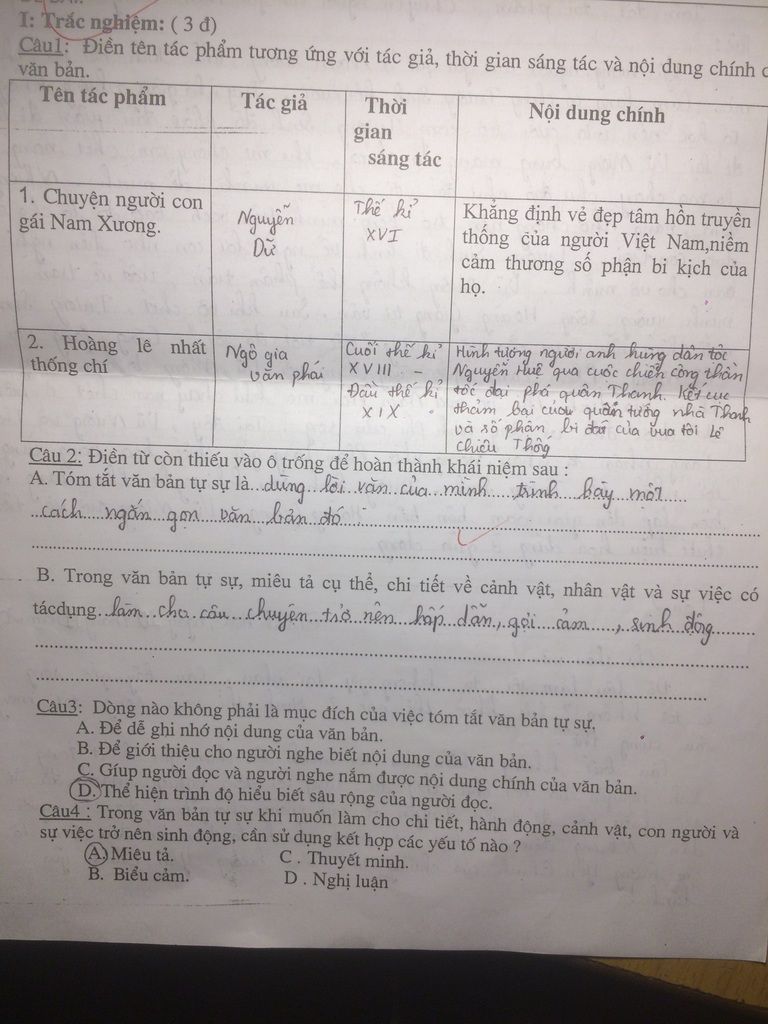 I: Trắc nghiệm: ( 3 đ)
Câu1: Điền tên tác phẩm tương ứng với tác giả, thời gian sáng tác và nội dung chính
văn bản.
Tên tác phẩm
Tác giả
Thời
gian
sáng tác
Nội dung chính
1. Chuyện người con
gái Nam Xương.
Nguyễn
Dữ
Thế kỉ
XVI
Khẳng định vẻ đẹp tâm hồn truyền
thống của người Việt Nam,niềm
cảm thương số phận bi kịch của
họ.
2. Hoàng lê nhất
thống chí
Ngô gia
văn phái
Cuối thế kỉ
XVIII –
Đầu thế kỉ
XIX
Hình tượng người anh hùng dân tôc
Nguyễn Huê qua cuôc chiến công thần
tốc đai phá quân Thanh. Kết cuc
thảm bai của quân tướng nhà Thanh
và số phân bi đát của vua tôi Lê
chiêu Thống
Câu 2: Điền từ còn thiếu vào ô trống để hoàn thành khái niệm sau :
A. Tóm tắt văn bản tự sự là...dùng lời văn của mình trình bày môt.....
..cách ngắn gọn văn bản đó.
B. Trong văn bản tự sự, miêu tả cụ thể, chi tiết về cảnh vật, nhân vật và sự việc có
tácdụng...làm cho câu chuyên trở nên hấp dẫn, gợi cảm, sinh đông.......
Câu3: Dòng nào không phải là mục đích của việc tóm tắt văn bản tự sự.
A. Để dễ ghi nhớ nội dung của văn bản.
B. Để giới thiệu cho người nghe biết nội dung của văn bản.
C. Gíup người đọc và người nghe nắm được nội dung chính của văn bản.
D. Thể hiện trình độ hiểu biết sâu rộng của người đọc.
Câu4 : Trong văn bản tự sự khi muốn làm cho chi tiết, hành động, cảnh vật, con người và
sự việc trở nên sinh động, cần sử dụng kết hợp các yếu tố nào ?
A. Miêu tả. C . Thuyết minh.
B. Biểu cảm. D . Nghị luận